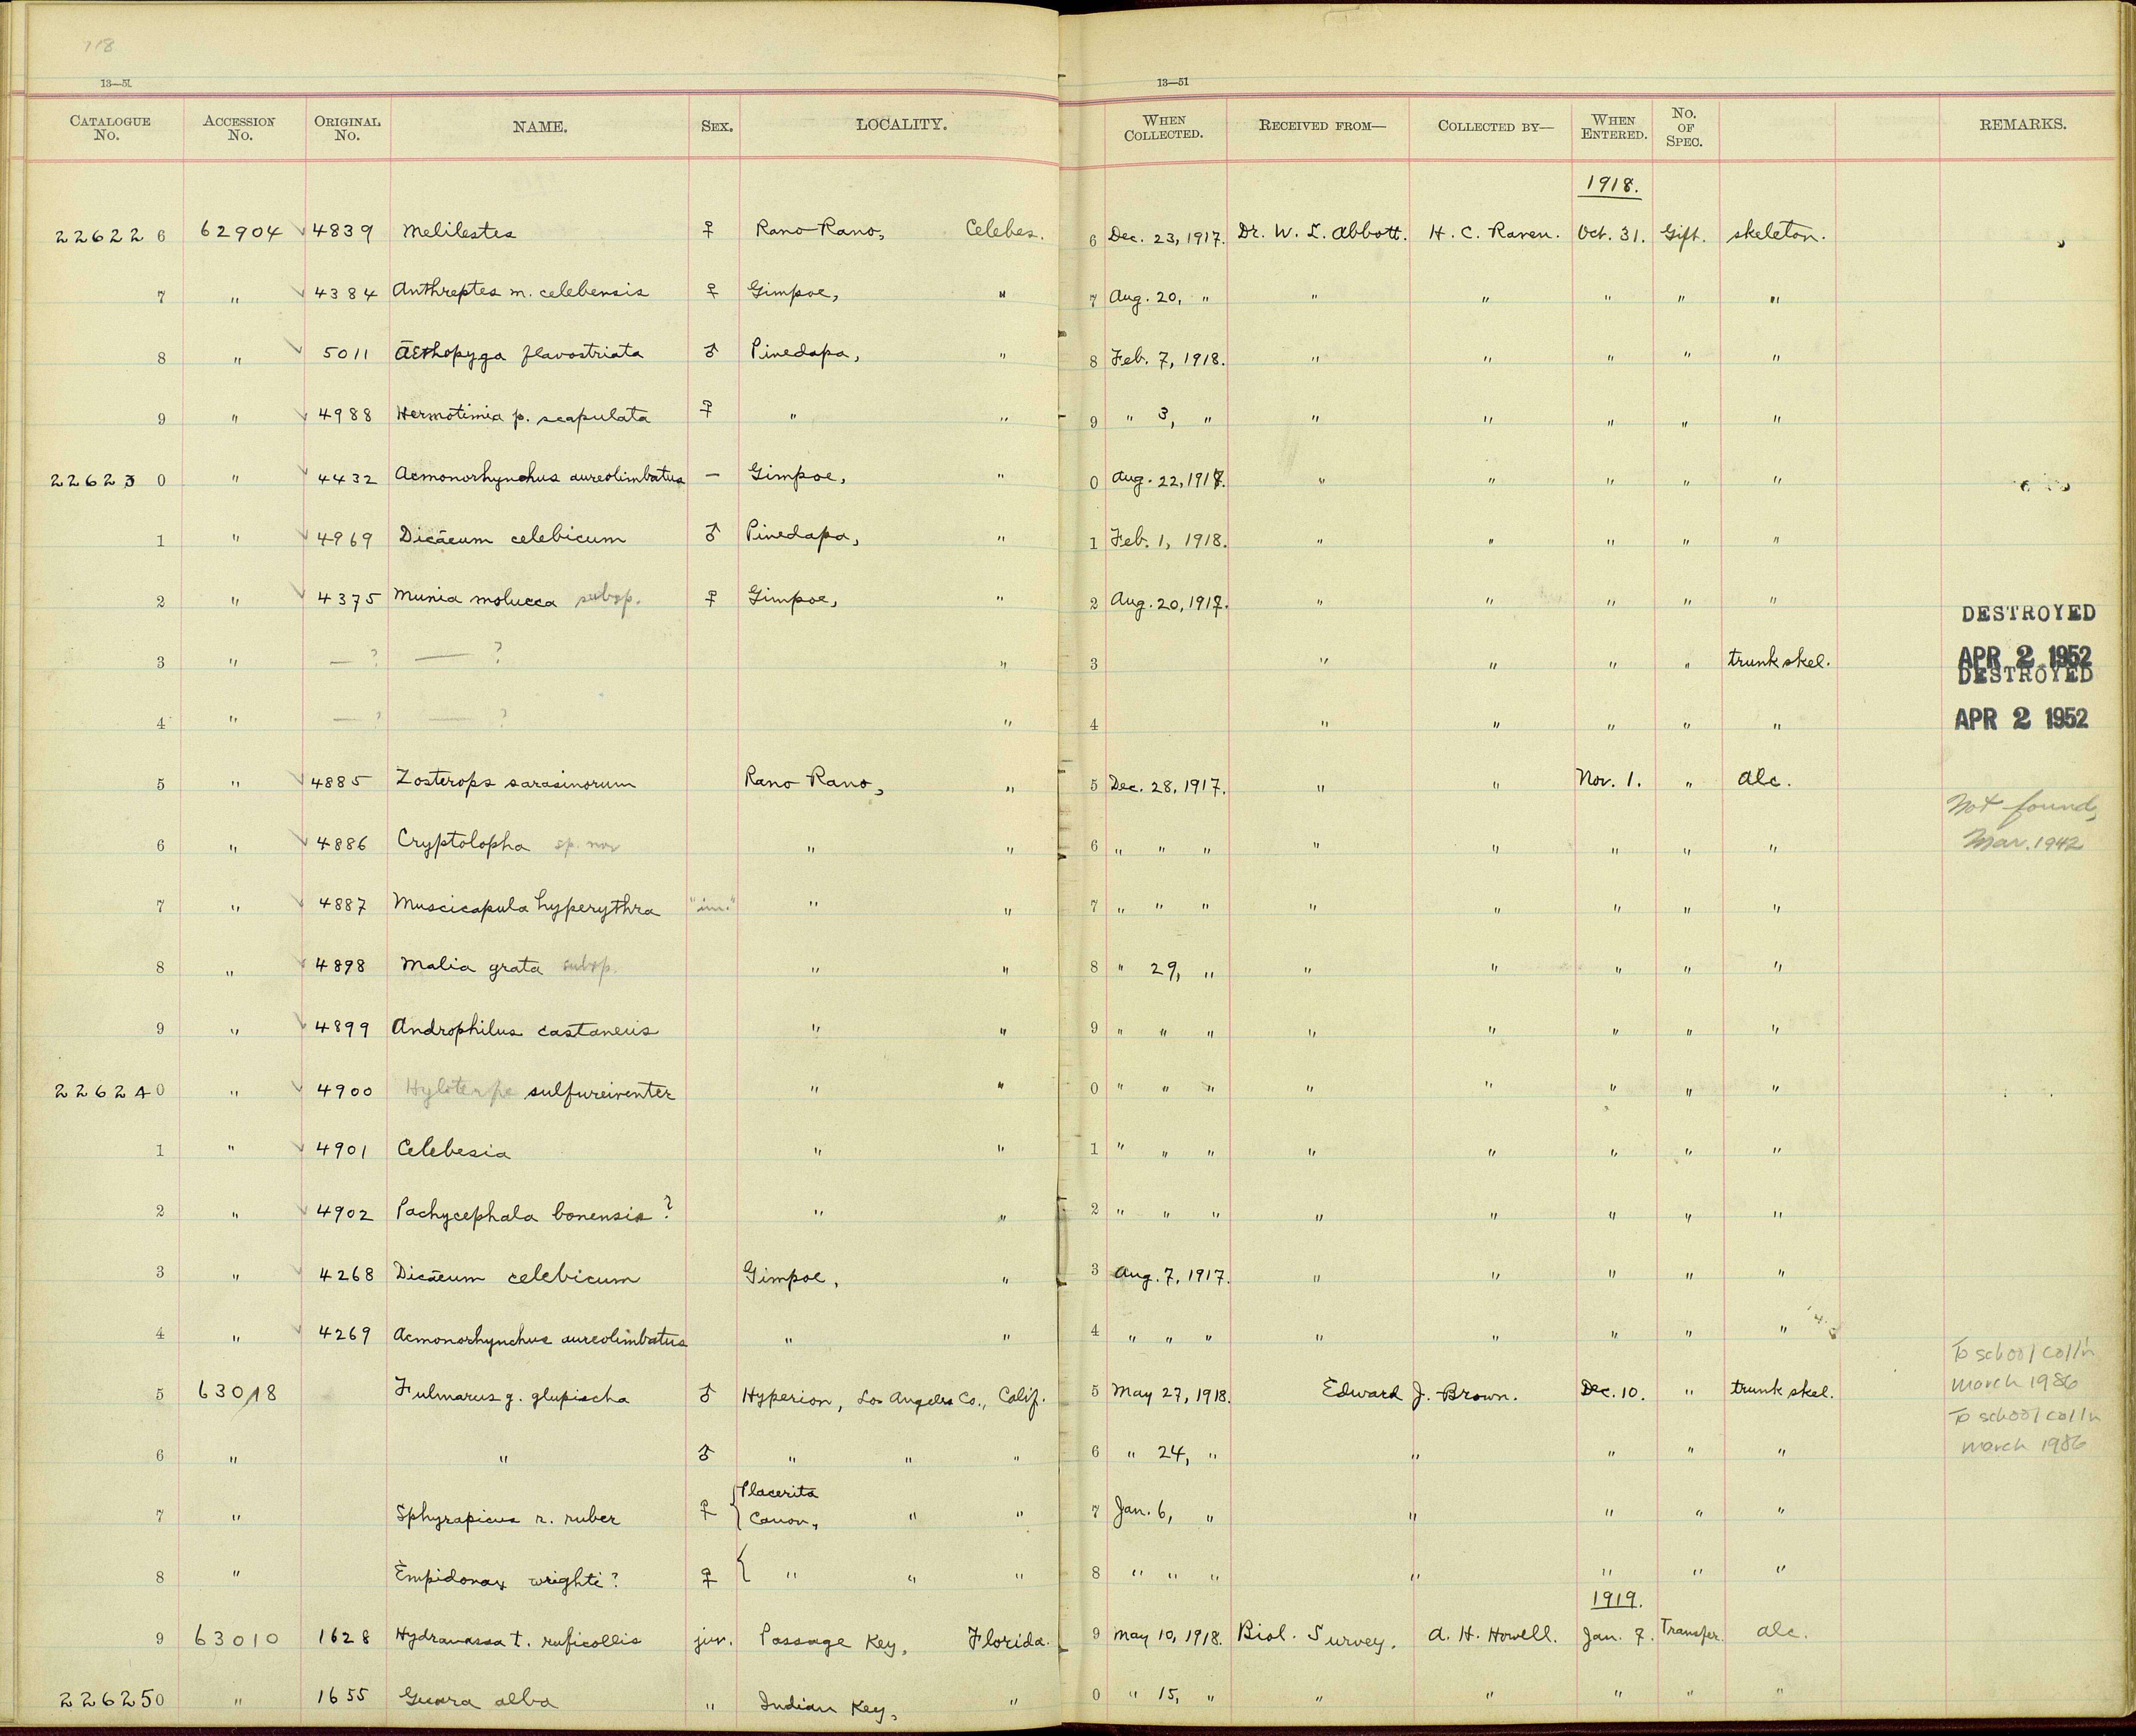 118
13—51
13—51
CATALOGUE No. ACCESSION No. ORIGINAL No. NAME. SEX. LOCALITY. WHEN COLLECTED. RECEIVED FROM— COLLECTED BY— WHEN ENTERED. No. OF SPEC. REMARKS.
1918.
22622 6 62904 ✓ 4839 Melilestes ♀ Rano-Rano, Celebes. 6 Dec. 23, 1917. Dr. W. L. Abbott. H. C. Raven. Oct. 31. Gift. skeleton.
7 " ✓ 4384 Anthreptes m. celebensis ♀ Gimpoe, " 7 Aug. 20, " " " " " "
8 " ✓ 5011 Aethopyga flavostriata ♂ Pinedapa, " 8 Feb. 7, 1918. " " " " "
9 " ✓ 4988 Hermotimia p. scapulata ♀ " " 9 " 3, " " " " " "
22623 0 " ✓ 4432 Acmonorhynchus aureolimbatus — Gimpoe, " 0 Aug. 22, 1917. " " " " "
1 " ✓ 4969 Dicaeum celebicum ♂ Pinedapa, " 1 Feb. 1, 1918. " " " " "
2 " ✓ 4375 Munia molucca subsp. ♀ Gimpoe, " 2 Aug. 20, 1917. " " " " "
DESTROYED
3 " — ? — ? " 3 " " " " trunk skel. APR 2 1952
DESTROYED
4 " — ? — ? " 4 " " " " " APR 2 1952
5 " ✓ 4885 Zosterops sarasinorum Rano-Rano, " 5 Dec. 28, 1917. " " Nov. 1. " alc.
Not found,
6 " ✓ 4886 Cryptolopha sp. nov " " 6 " " " " " " " " Mar. 1942
7 " ✓ 4887 Muscicapula hyperythra "im." " " 7 " " " " " " " "
8 " ✓ 4898 Malia grata subsp. " " 8 " 29, " " " " " "
9 " ✓ 4899 Androphilus castaneus " " 9 " " " " " " " "
22624 0 " ✓ 4900 Hyloterpe sulfureiventer " " 0 " " " " " " " "
1 " ✓ 4901 Celebesia " " 1 " " " " " " " "
2 " ✓ 4902 Pachycephala bonensis? " " 2 " " " " " " " "
3 " ✓ 4268 Dicaeum celebicum Gimpoe, " 3 Aug. 7, 1917. " " " " "
4 " ✓ 4269 Acmonorhynchus aureolimbatus " " 4 " " " " " " " "
To school col'n
5 63018 Fulmarus g. glupischa ♂ Hyperion, Los Angeles Co., Calif. 5 May 27, 1918. Edward J. Brown. Dec. 10. " trunk skel. March 1986
To school col'n
6 " " ♂ " " " 6 " 24, " " " " " March 1986
7 " Sphyrapicus r. ruber ♀ { Placerita Canon, " " 7 Jan. 6, " " " " "
8 " Empidonax wrighti? ♀ { " " " 8 " " " " " " "
1919.
9 63010 1628 Hydranassa t. ruficollis juv. Passage Key, Florida. 9 May 10, 1918. Biol. Survey. A. H. Howell. Jan. 7. Transfer. alc.
22625 0 " 1655 Guara alba " Indian Key, " 0 " 15, " " " " " "